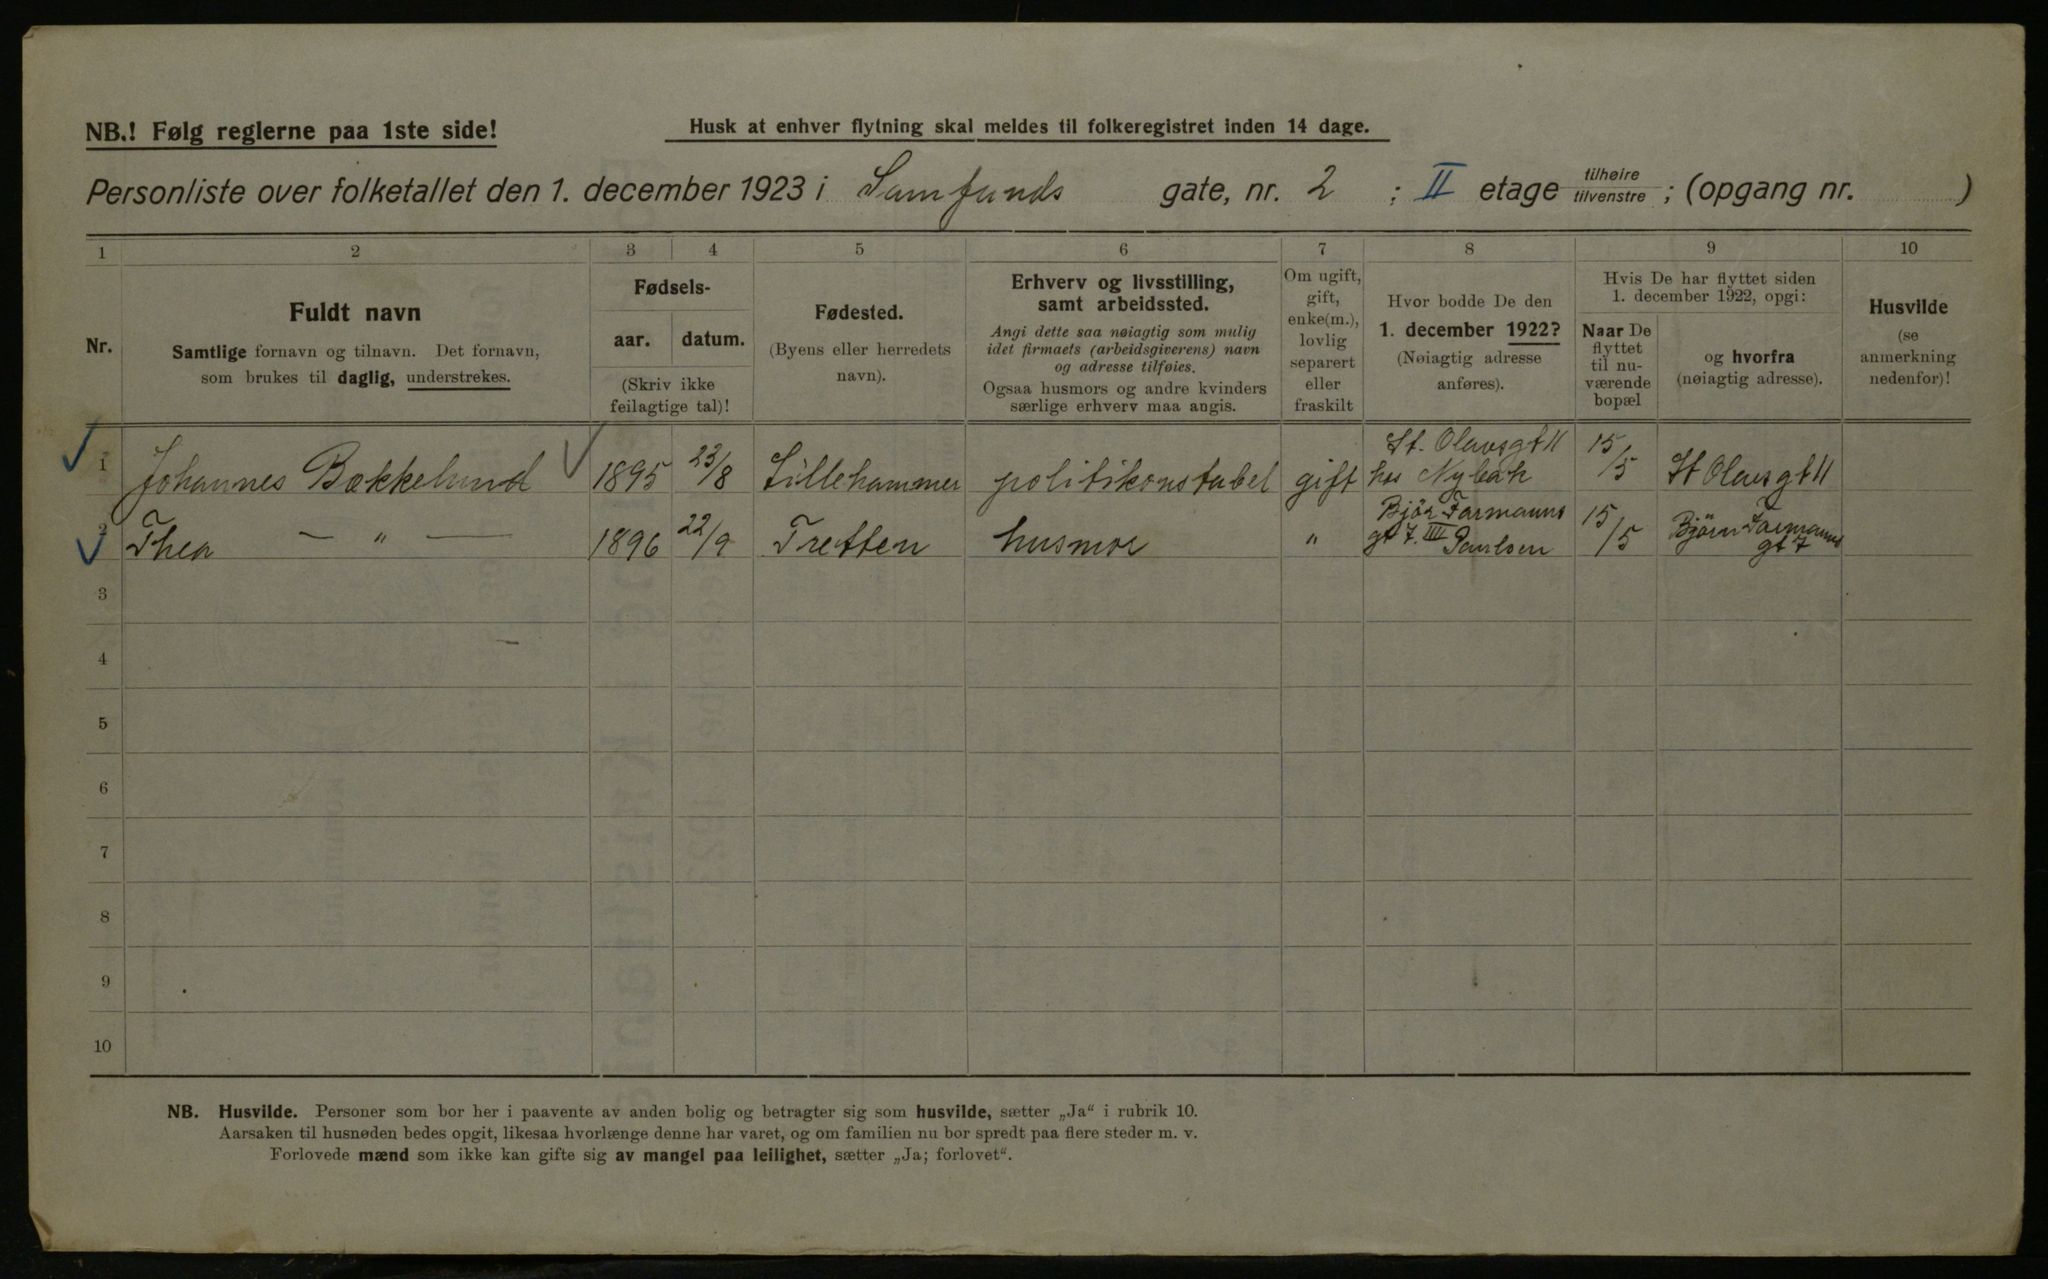 NB.! Følg reglerne paa 1ste side!
Husk at enhver flytning skal meldes til folkeregistret inden 14 dage.
Personliste over folketallet den 1. december 1923 i Samfunds gate, nr. 2 ; II etage tilhøire tilvenstre ; (opgang nr. )
1 2 3 4 5 6 7 8 9 10
Nr.
Fuldt navn
Samtlige fornavn og tilnavn. Det fornavn,
som brukes til daglig, understrekes.
Fødsels-
aar. datum.
(Skriv ikke
feilagtige tal)!
Fødested.
(Byens eller herredets
navn).
Erhverv og livsstilling,
samt arbeidssted.
Angi dette saa nøiagtig som mulig
idet firmaets (arbeidsgiverens) navn
og adresse tilføies.
Ogsaa husmors og andre kvinders
særlige erhverv maa angis.
Om ugift,
gift,
enke(m.),
lovlig
separert
eller
fraskilt
Hvor bodde De den
1. december 1922?
(Nøiagtig adresse
anføres).
Hvis De har flyttet siden
1. december 1922, opgi:
Naar De
flyttet
til nu-
værende
bopæl
og hvorfra
(nøiagtig adresse).
Husvilde
(se
anmerkning
nedenfor)!
1 Johannes Bækkelund 1895 23/8 Lillehammer politikonstabel gift St. Olavsgt 11 hos Nybak 15/5 St Olavsgt 11
2 Thea — " — 1896 22/9 Tretten husmor " Bjør Farmanns gt 7. IIII Paulsen 15/5 Bjørn Farmanns gt 7
3
4
5
6
7
8
9
10
NB. Husvilde. Personer som bor her i paavente av anden bolig og betragter sig som husvilde, sætter „Ja“ i rubrik 10.
Aarsaken til husnøden bedes opgit, likesaa hvorlænge denne har varet, og om familien nu bor spredt paa flere steder m. v.
Forlovede mænd som ikke kan gifte sig av mangel paa leilighet, sætter „Ja; forlovet“.